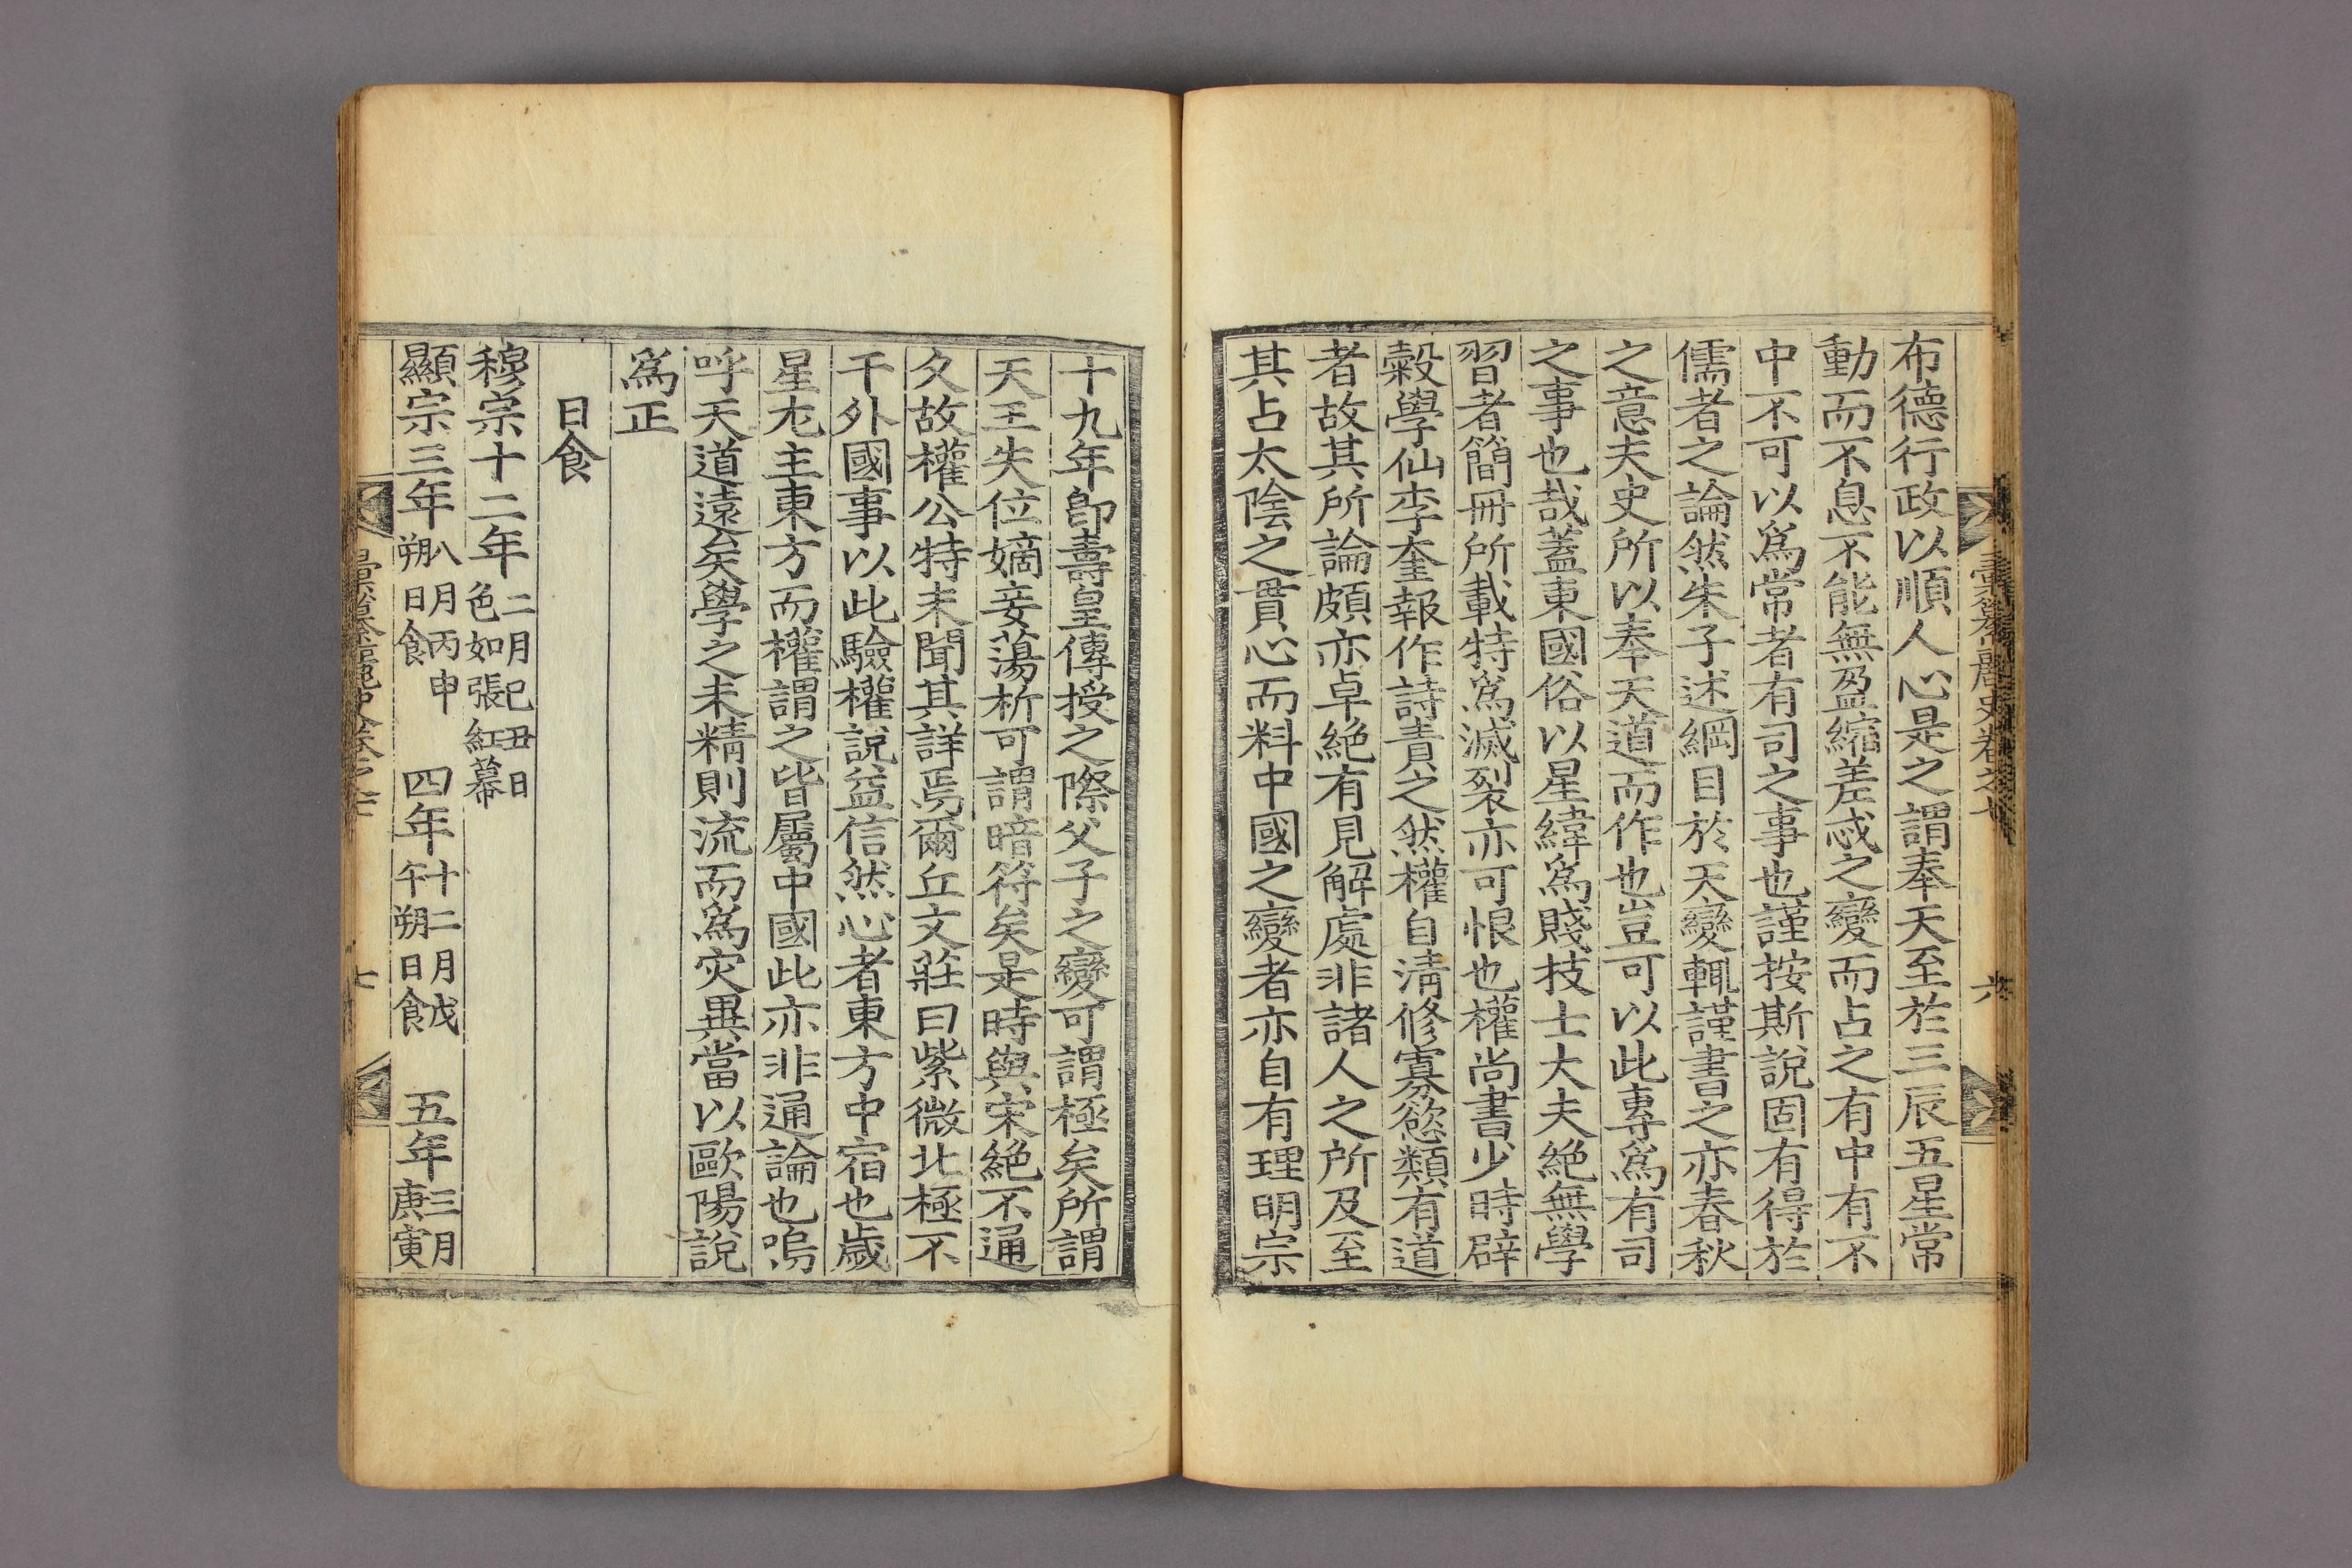 布德行政以順人心是之謂奉天至於三辰五星常
動而不息不能無盈縮差忒之變而占之有中有不
中不可以爲常者有司之事也謹按斯說固有得於
儒者之論然朱子述綱目於天變輒謹書之亦春秋
之意夫史所以奉天道而作也豈可以此專爲有司
之事也哉蓋東國俗以星緯爲賤技士大夫絕無學
習者簡冊所載特爲滅裂亦可恨也權尙書少時辟
糓學仙李奎報作詩責之然權自淸修寡慾類有道
者故其所論頗亦卓絕有見解處非諸人之所及至
其占太陰之貫心而料中國之變者亦自有理明宗
六
十九年卽壽皇傳授之際父子之變可謂極矣所謂
天王失位嫡妾蕩析可謂暗符矣是時與宋絕不通
久故權公特未聞其詳焉爾丘文莊曰紫微北極不
干外國事以此驗權說益信然心者東方中宿也歲
星尤主東方而權謂之皆屬中國此亦非通論也嗚
呼天道遠矣學之未精則流而爲灾異當以歐陽說
爲正
日食
穆宗十二年二月巳丑日色如張紅幕
顯宗三年八月丙申朔日食 四年十二月戊午朔日食 五年三月庚寅
七